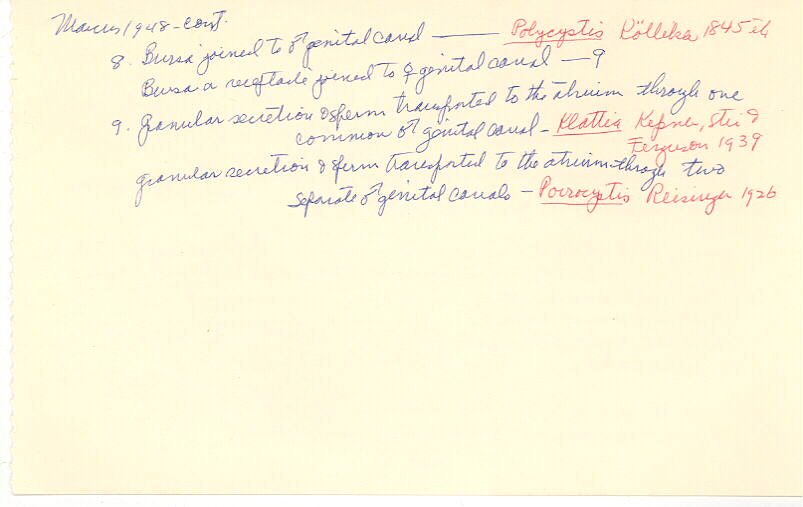 Marcus 1948 - cont.
8. Bursa joined to ♂ genital canal — Polycystis Kölliker 1845
Bursa a receptacle joined to ♀ genital canal — 9
9. Granular secretion & sperm transported to the atrium through one
common ♂ genital canal - Klattia Kepner, Stei &
Ferguson 1939
granular secretion & sperm transported to the atrium through two
separate ♂ genital canals - Porrocystis Reisinger 1926